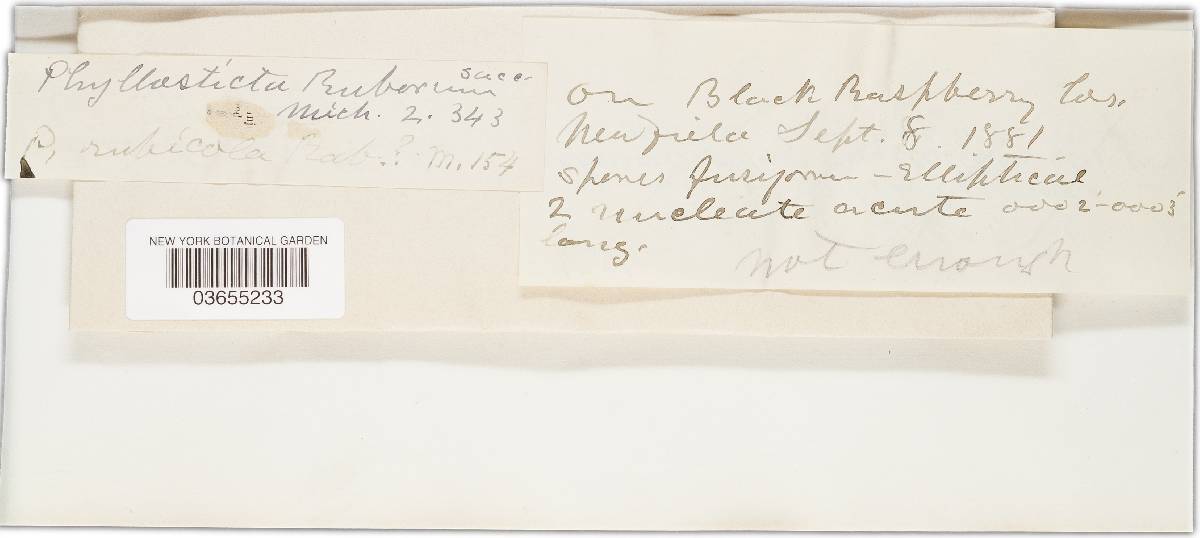 Phyllosticta Ruborum Sacc.
Mich. 2. 343
P, rubicola Rab.? M. 154
NEW YORK BOTANICAL GARDEN
03655233
on Black Raspberry lvs.
Newfield Sept. 8. 1881
spores fusiform - Elliptical
2 nucleate acute 0002-0003
long.
not enough